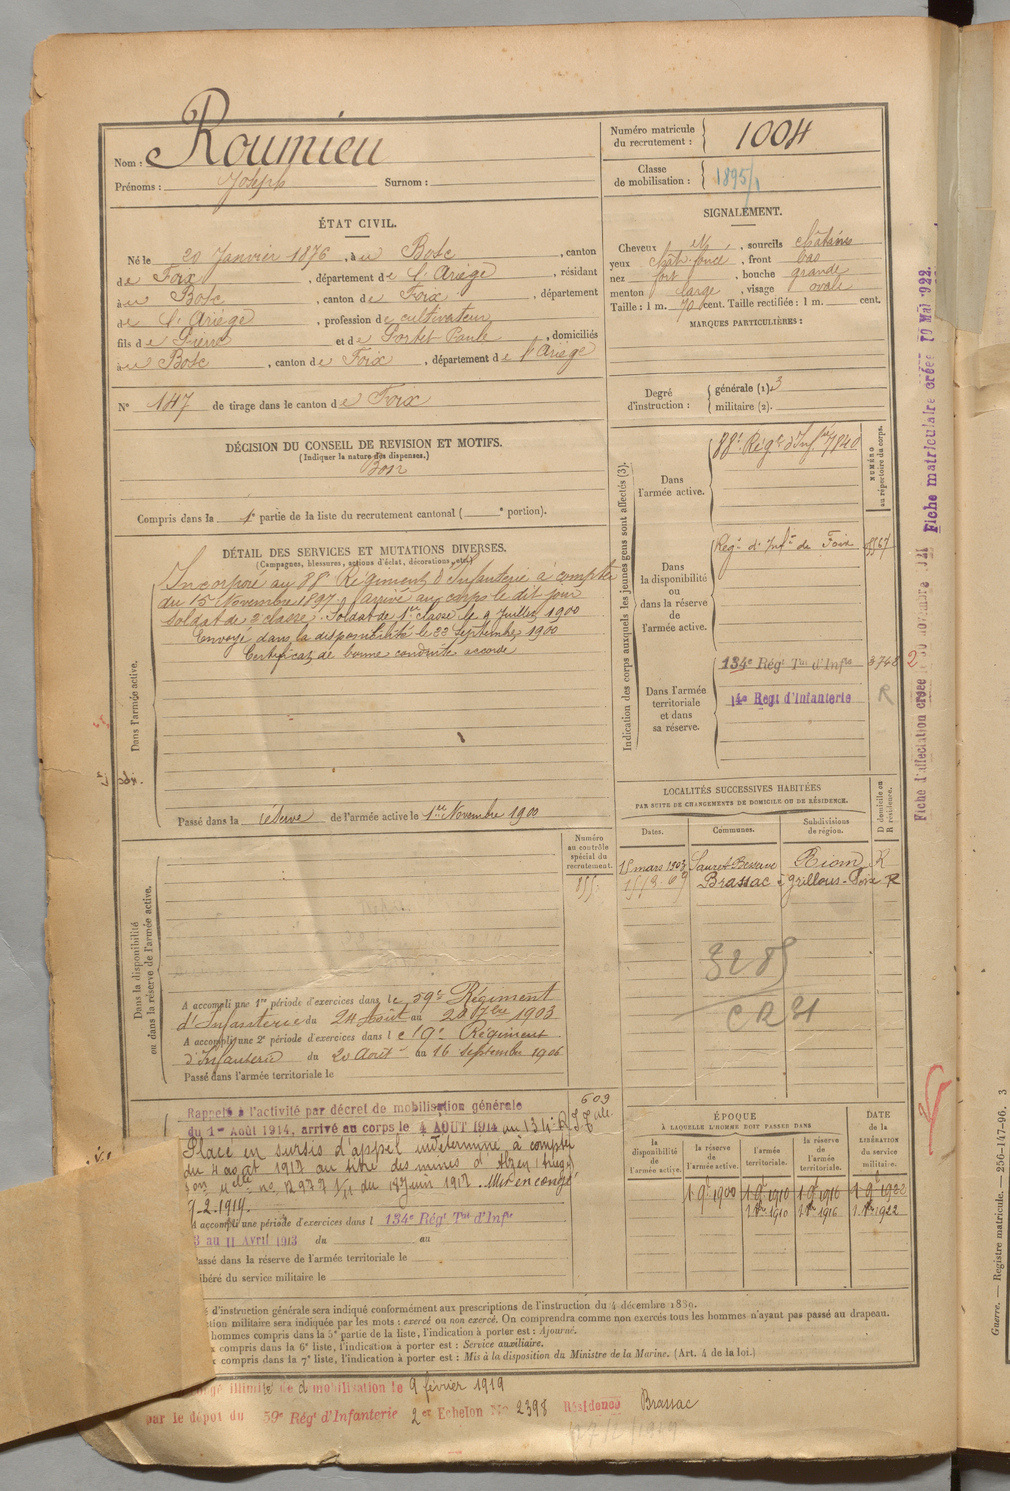 Nom : Roumieu
Prénoms : Joseph Surnom :
Numéro matricule du recrutement : 1004
Classe de mobilisation : 1895/1
ÉTAT CIVIL.
Né le 20 Janvier 1876, à u Bosc, canton
de Foix, département de l'Ariège, résidant
à u Bosc, canton de Foix, département
de l'Ariège, profession de cultivateur
fils de Pierre et de Portet Paule, domiciliés
à u Bosc, canton de Foix, département de l'Ariège
N° 147 de tirage dans le canton de Foix
SIGNALEMENT.
Cheveux et, sourcils châtains
yeux chât. foncé, front bas
nez fort, bouche grande
menton large, visage ovale
Taille : 1 m. 70 cent. Taille rectifiée : 1 m. cent.
MARQUES PARTICULIÈRES :
Degré d'instruction : générale (1). 3
militaire (2).
DÉCISION DU CONSEIL DE REVISION ET MOTIFS.
(Indiquer la nature des dispenses.)
Bon
Compris dans la 1e partie de la liste du recrutement cantonal ( e portion).
DÉTAIL DES SERVICES ET MUTATIONS DIVERSES.
(Campagnes, blessures, actions d'éclat, décorations, etc.)
Dans l'armée active.
Incorporé au 88e Régiment d'Infanterie à compter
du 15 Novembre 1897, arrivé au corps le dit jour
soldat de 2e classe. Soldat de 1re classe le 9 Juillet 1900
Envoyé dans la disponibilité le 22 Septembre 1900
Certificat de bonne conduite accordé
Passé dans la réserve de l'armée active le 1er Novembre 1900
Indication des corps auxquels les jeunes gens sont affectés (3).
NUMÉRO au répertoire du corps.
Dans l'armée active.
88e Régt d'Infrie 7840
Dans la disponibilité ou dans la réserve de l'armée active.
Régt d'Infie de Foix
Dans l'armée territoriale et dans sa réserve.
134e Régt Tal d'Infie 3748 2
14e Regt d'Infanterie R
LOCALITÉS SUCCESSIVES HABITÉES
PAR SUITE DE CHANGEMENTS DE DOMICILE OU DE RÉSIDENCE.
Dates. Communes. Subdivisions de région. D domicile ou R résidence.
15 mars 1903 Sauret Besserve Riom R
Brassac Foix R
3285
CR 21
Dans la disponibilité ou dans la réserve de l'armée active.
Numéro au contrôle spécial du recrutement.
A accompli une 1re période d'exercices dans le 59e Régiment
d'Infanterie du 24 Août au 20 7bre 1903
A accompli une 2e période d'exercices dans le 19e Régiment
d'Infanterie du 20 Août au 16 septembre 1906
Passé dans l'armée territoriale le
609
Rappelé à l'activité par décret de mobilisation générale
du 1er Août 1914, arrivé au corps le 4 AOUT 1914 au 134e R.I. Tale
Placé en sursis d'appel indéterminé à compter
du 4 août 1917 au titre des mines d'Alzen (Ariège)
du 18 Juin 1917. Mis en congé
9-2-1919.
A accompli une période d'exercices dans l 134e Régt Tal d'Infie
3 au 11 Avril 1913 du au
Passé dans la réserve de l'armée territoriale le
Libéré du service militaire le
ÉPOQUE
À LAQUELLE L'HOMME DOIT PASSER DANS
la disponibilité de l'armée active. la réserve de l'armée active. l'armée territoriale. la réserve de l'armée territoriale.
DATE de la LIBÉRATION du service militaire.
1 9e 1900 1 9e 1910 1 9e 1916 1 9e 1922
1 8re 1910 1 8re 1916 1 8re 1922
é d'instruction générale sera indiqué conformément aux prescriptions de l'instruction du 4 décembre 1889.
ction militaire sera indiquée par les mots : exercé ou non exercé. On comprendra comme non exercés tous les hommes n'ayant pas passé au drapeau.
hommes compris dans la 5e partie de la liste, l'indication à porter est : Ajourné.
x compris dans la 6e liste, l'indication à porter est : Service auxiliaire.
x compris dans la 7e liste, l'indication à porter est : Mis à la disposition du Ministre de la Marine. (Art. 4 de la loi.)
illimité de démobilisation le 9 février 1919
par le dépôt du 59e Régt d'Infanterie 2e Echelon No 2398 Résidence Brassac
Fiche matriculaire créée 10 Mai 1922.
Fiche d'affectation créée
Guerre. — Registre matricule. — 256-147-96. 3